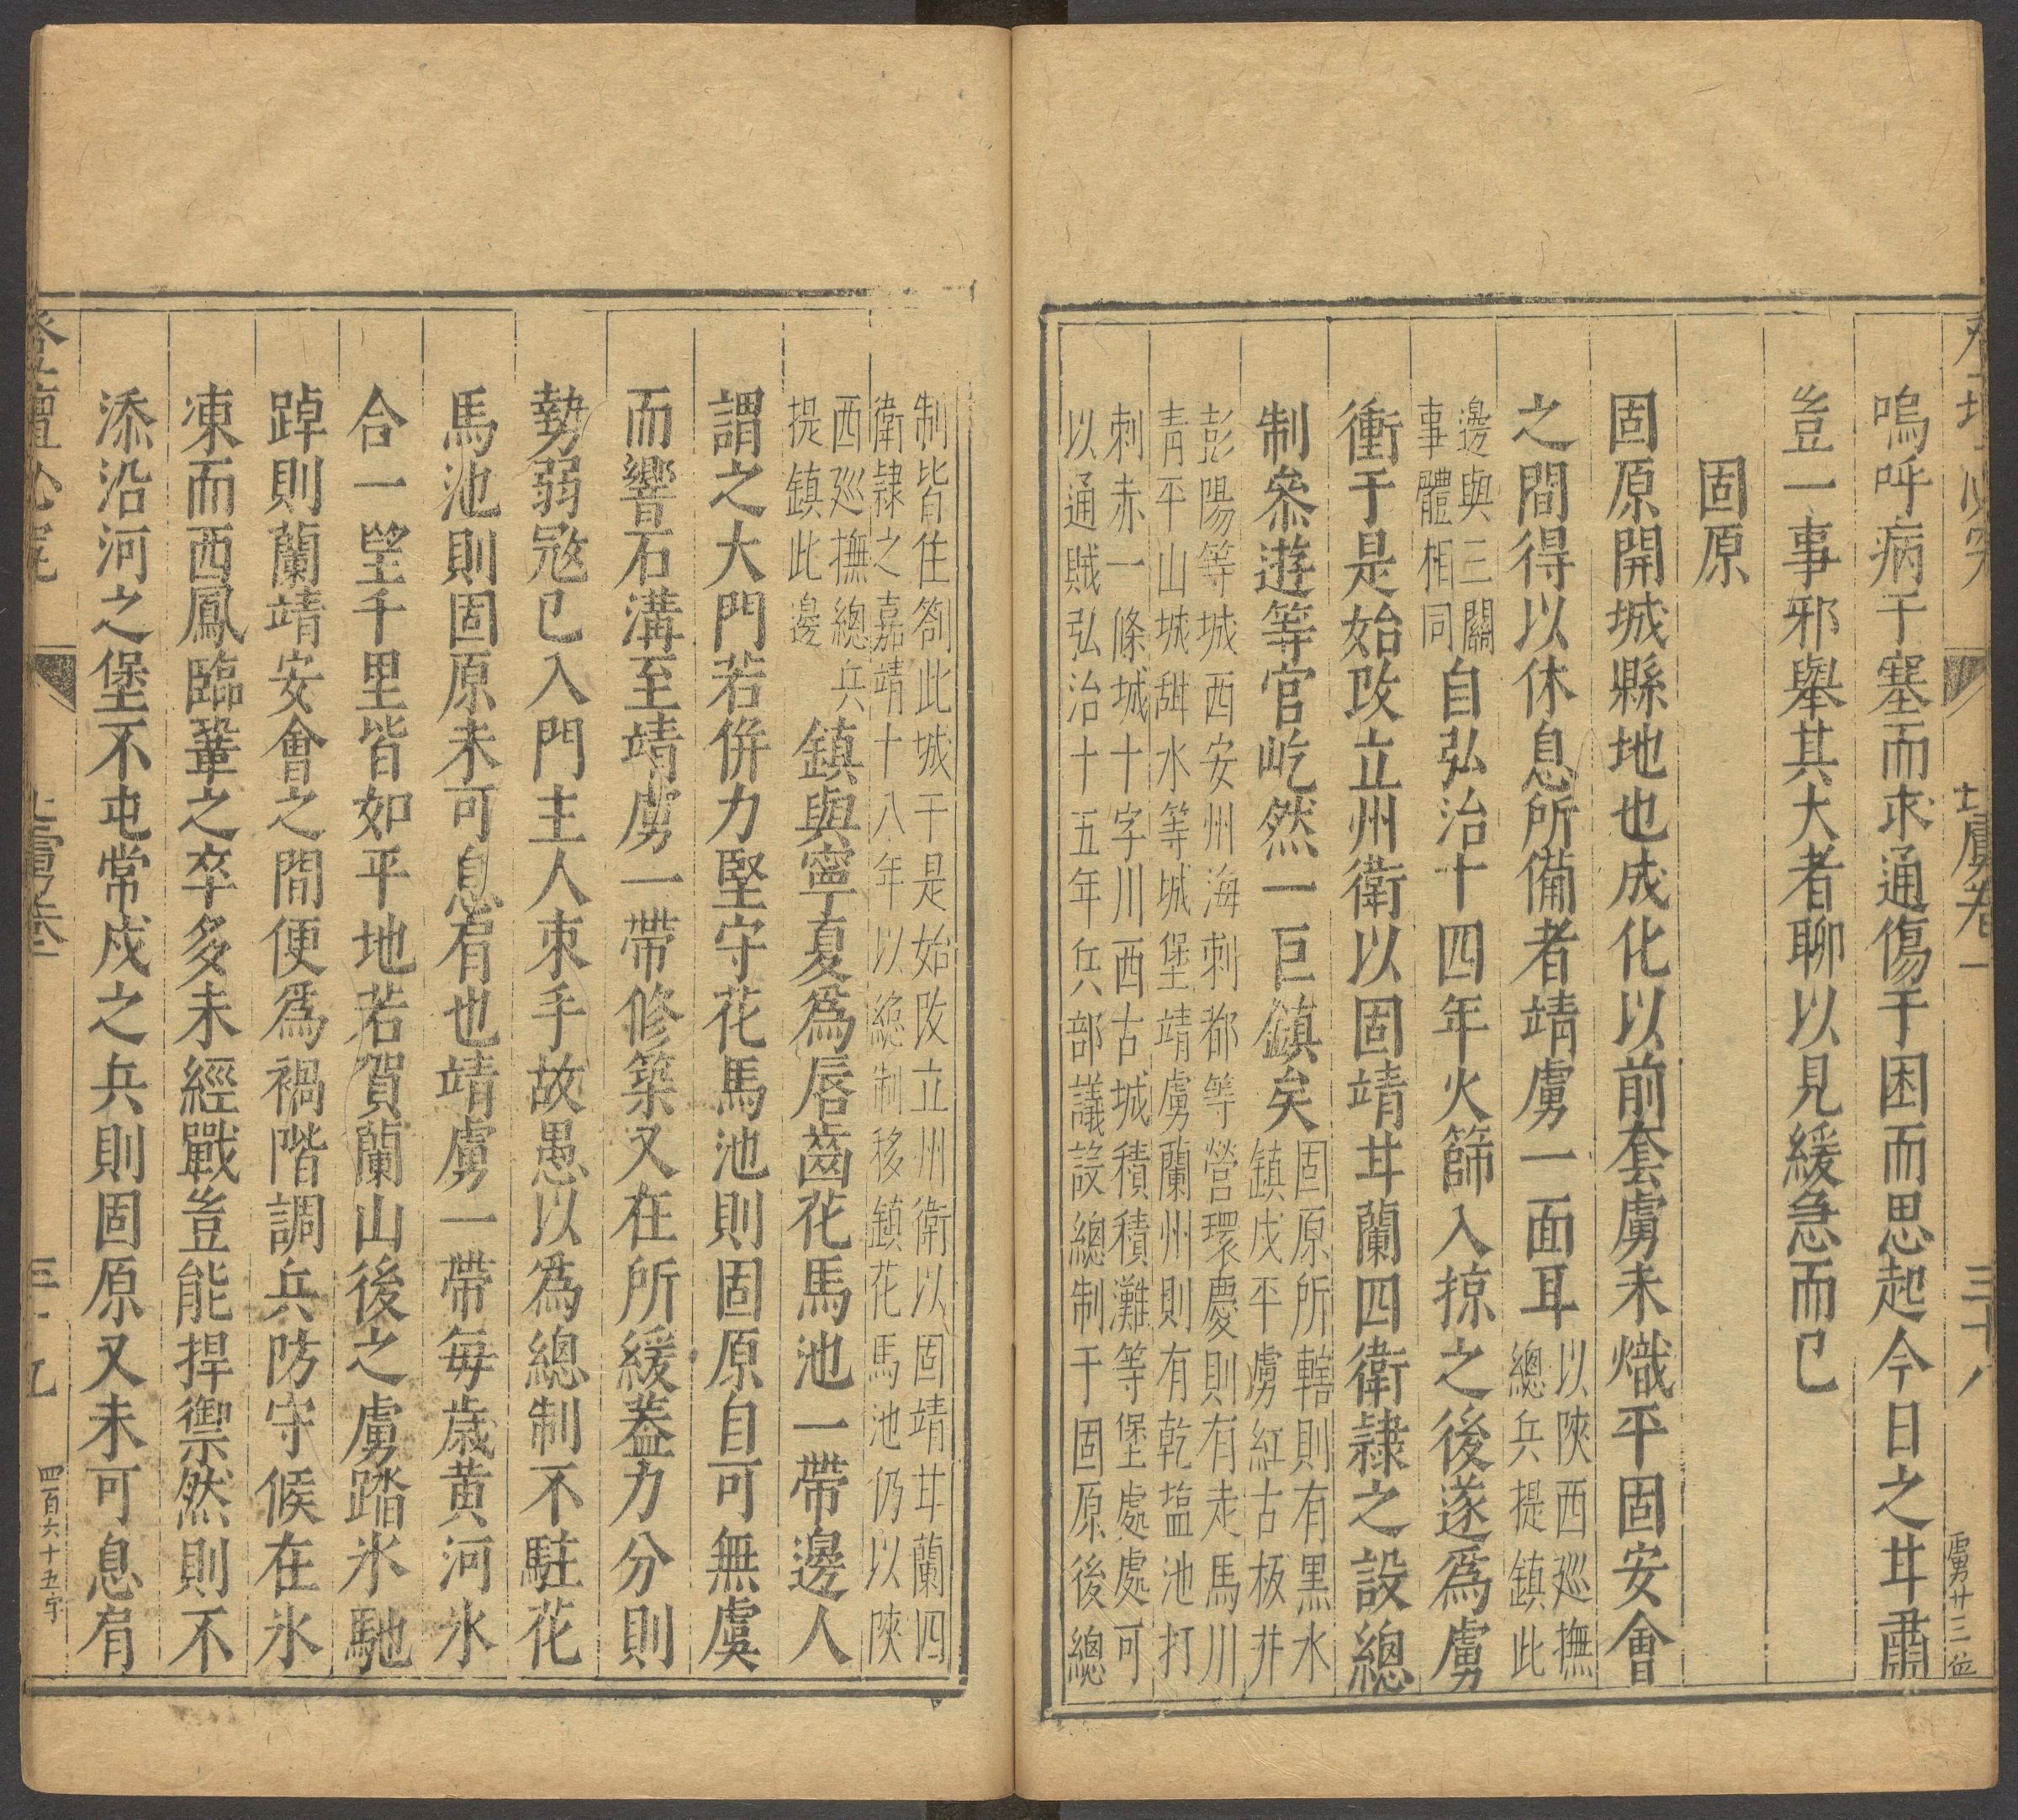 卷一 三十八 虜廿三位
嗚呼病于塞而求通傷于困而思起今日之甘肅
豈一事邪舉其大者聊以見緩急而已
固原
固原開城縣地也成化以前套虜未熾平固安會
之間得以休息所備者靖虜一面耳以陝西廵撫
總兵提鎮此
邊與三關
事體相同自弘治十四年火篩入掠之後遂爲虜
衝于是始改立州衛以固靖甘蘭四衛隷之設總
制叅遊等官屹然一巨鎮矣固原所轄則有黒水
鎮戍平虜紅古板井
彭陽等城西安州海刺都等營環慶則有走馬川
青平山城甜水等城堡靖虜蘭州則有乾盐池打
刺赤一條城十字川西古城積積灘等堡處處可
以通賊弘治十五年兵部議設總制于固原後總
制皆住劄此城于是始改立州衛以固靖甘蘭四
衛隷之嘉靖十八年以總制移鎮花馬池仍以陝
西廵撫總兵
提鎮此邊鎮與寧夏爲唇齒花馬池一帶邊人
謂之大門若併力堅守花馬池則固原自可無虞
而響石溝至靖虜一帶修築又在所緩葢力分則
勢弱㓂已入門主人束手故愚以為總制不駐花
馬池則固原未可息肩也靖虜一帶每歲黃河氷
合一望千里皆如平地若賀蘭山後之虜踏氷馳
踔則蘭靖安會之間便爲禍階調兵防守候在氷
凍而西鳳臨鞏之卒多未經戰豈能捍禦然則不
添沿河之堡不屯常戍之兵則固原又未可息肩
四百六十五字